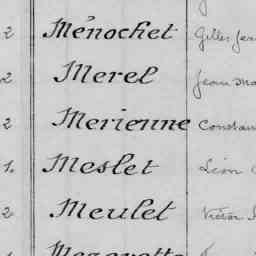 2 Ménochet Gilles
2 Merel Jean
2 Merienne Constan
1. Meslet Léon
2 Meulet Victor